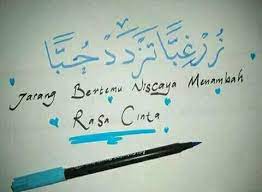 زُرْ غِبًّا تَزْدَدْ حُبًّا
Jarang Bertemu Niscaya Menambah
Rasa Cinta